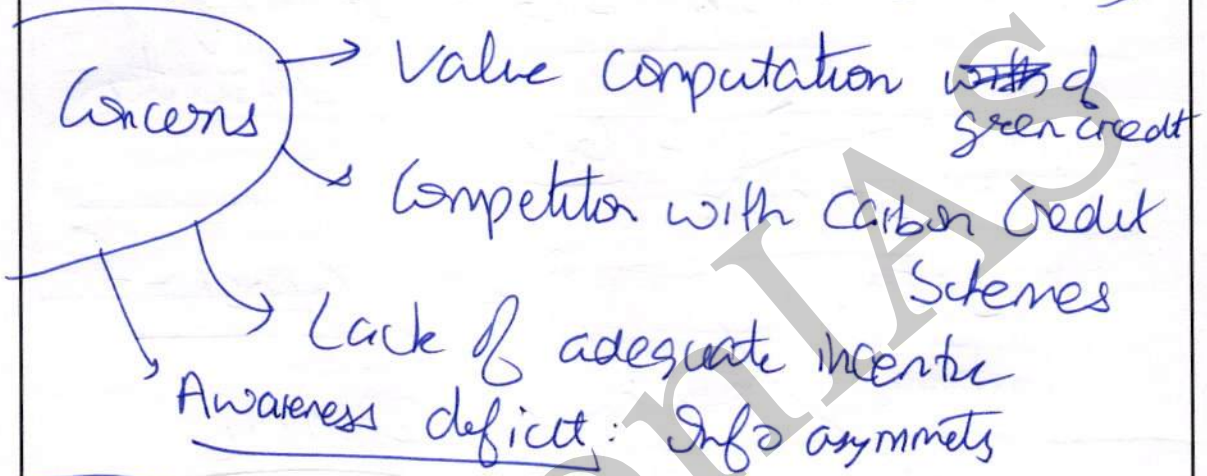 Concerns
Value Computation of
green credit
Competitor with Carbon Credit
Schemes
Lack of adequate incentive
Awareness deficit: Info asymmets
nIAS